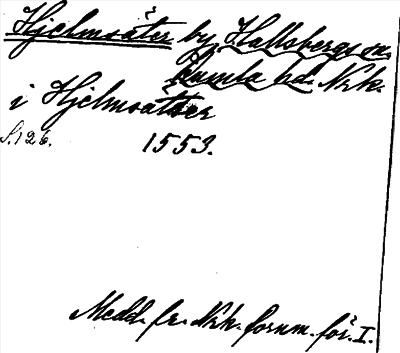 Hjelmsäter by, Hallsbergs sn.
Kumla hd. Nrk.
i Hjelmsätter
S. 126. 1553.
Medd. fr. Nrk. fornm. för. I.